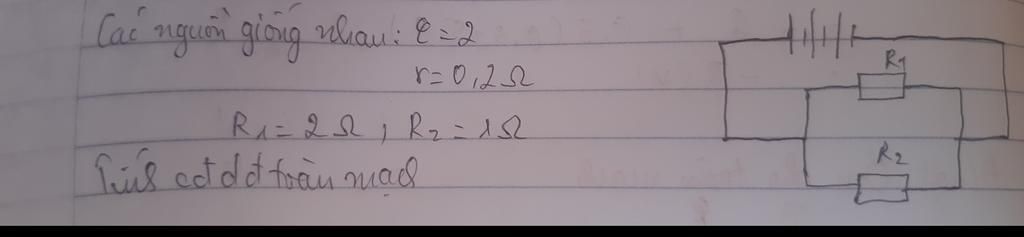 Các nguồn giống nhau: ε=2
r=0,2Ω
R1=2Ω, R2=1Ω
Tính cđdđ toàn mạch
R1
R2